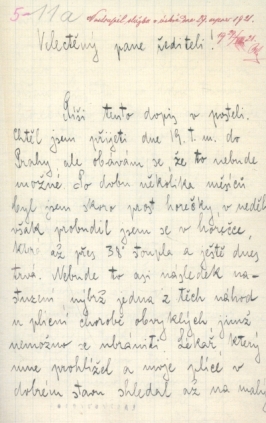 5-11a
Velectěný pane řediteli!
Píši tento dopis v posteli.
Chtěl jsem přijeti dne 19. t. m. do
Prahy ale obávám se že to nebude
možné Po dobu několika měsíců
byl jsem skoro prost horečky, v neděli
však probudil jsem se v horečce
která až přes 38° stoupla a ještě dnes
trva. Nebude to asi následek na-
stuzení nýbrž jedna z těch náhod
u plicní choroby obvyklých jimž
nemožno se ubrániti. Lékař, který
mne prohlížel a moje plíce v
dobrém stavu shledal až na malý